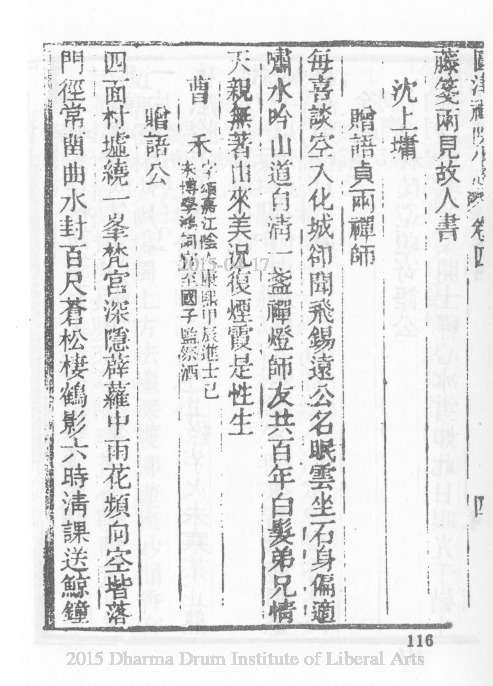 卷四
藤箋兩見故人書
沈上墉
贈語貞兩禪師
每喜談空入化城卻聞飛錫遠公名眠雲坐石身偏適
嘯水吟山道自清一盞禪燈師友共百年白髮弟兄情
天親無著由來美況復煙霞是性生
曹禾
字頌嘉江陰人康熙甲辰進士己
未博學鴻詞官至國子監祭酒
贈語公
四面村墟繞一峯梵宮深隱薜蘿中雨花頻向空堦落
門徑常畱曲水封百尺蒼松棲鶴影六時清課送鯨鐘
116
2015 Dharma Drum Institute of Liberal Arts